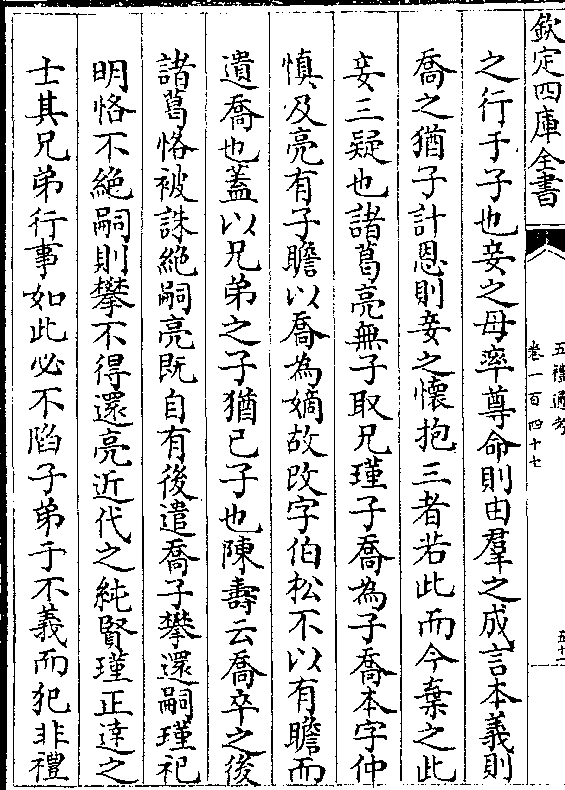 欽定四庫全書
五禮通考
卷一百四十七
之行于子也妾之母率尊命則由羣之成言本義則
喬之猶子計恩則妾之懷抱三者若此而今棄之此
妾三疑也諸葛亮無子取兄瑾子喬為子喬本字仲
慎及亮有子瞻以喬為嫡故改字伯松不以有瞻而
遺喬也蓋以兄弟之子猶已子也陳壽云喬卒之後
諸葛恪被誅絶嗣亮既自有後遣喬子攀還嗣瑾祀
明恪不絶嗣則攀不得還亮近代之純賢瑾正達之
士其兄弟行事如此必不陷子弟于不義而犯非禮